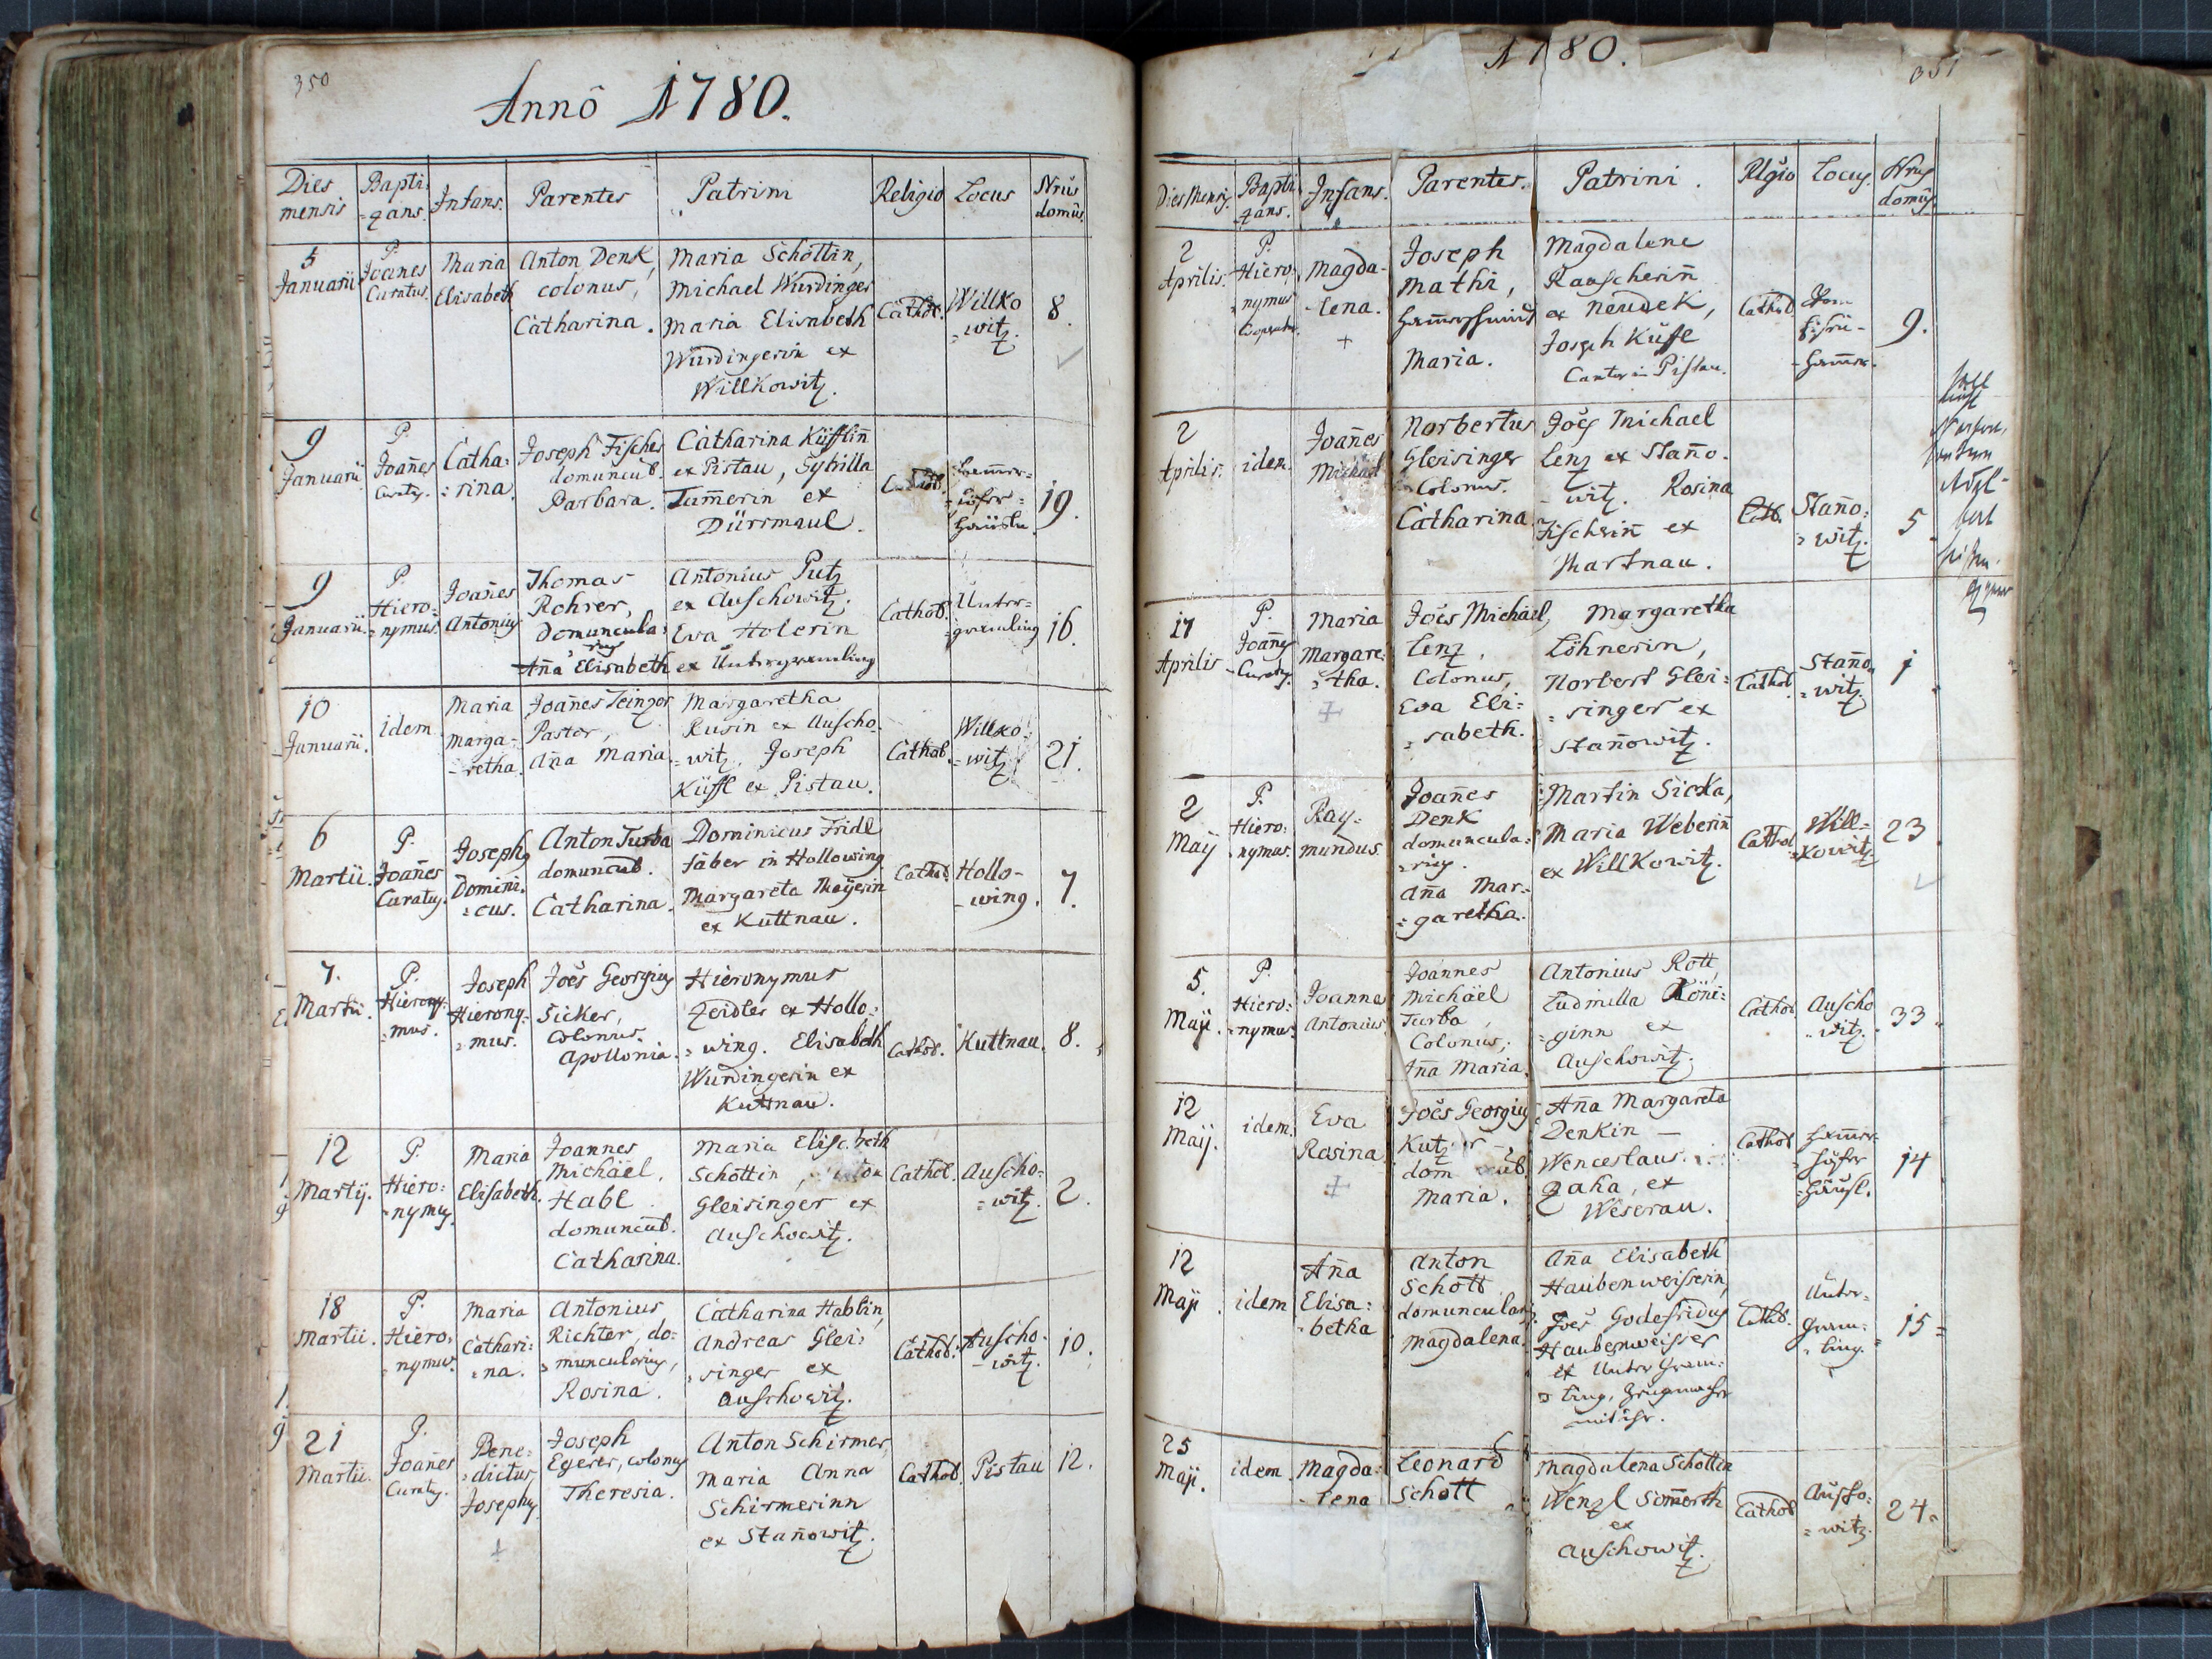 350
Annô 1780.
Dies mensis
Baptizans.
Infans.
Parentes
Patrini
Religio
Locus
Nrus domûs
5 Januarii
P. Joanes Curatus.
Maria Elisabeth
Anton Denk,
colonus,
Catharina.
Maria Schöttin,
Michael Würdinger
Maria Elisabeth
Würdingerin ex
Willkowitz.
Cathol.
Willko
=witz.
8.
9 Januarii
P. Joañes Curaty.
Catha:
=rina.
Joseph Fischer
domuncul.
Barbara.
Catharina Küfflin̄
ex Pistau, Sybilla
Tam̄erin ex
Dürrmaul.
Cathol.
19.
9 Januarii.
P. Hiero:
=nymus.
Joañes
Antonius
Thomas
Rohrer,
Domuncula:
rius
Aña Elisabeth
Antonius Putz
ex Auschowitz.
Eva Holerin
ex Untergramling
Cathol.
Unter=
gramling
16.
10 Januarii.
idem
Maria
Marga-
-retha.
Joañes Teinzer
Pastor,
Aña Maria
Margaretha
Rusin ex Auscho-
=witz, Joseph
Küffl ex Pistau.
Cathol.
Willko-
=witz
21.
6 Martii.
P. Joañes
Curatus.
Josephus
Domini:
=cus.
Anton Turba
domuncul.
Catharina.
Dominicus Fridl
faber in Hollowing
Margareta Mayerin
ex Kuttnau.
Cathol.
Hollo-
-wing.
7.
7. Martii.
P. Hierony-
=mus.
Joseph
Hierony:
=mus.
Joes Georgius
Sicker,
colonus.
Apollonia.
Hieronymus
Zeidler ex Hollo:
=wing. Elisabeth
Würdingerin ex
Kuttnau.
Cathol.
Kuttnau.
8.
12 Martij.
P. Hiero:
=nymus.
Maria
Elisabeth.
Joannes
Michäel.
Habl
domuncul.
Catharina.
Maria Elisabeth
Schöttin,
Gleisinger ex
Auschowitz.
Cathol.
Auscho-
=witz.
2.
18 Martii.
P. Hiero-
=nymus.
Maria
Cathari:
=na.
Antonius
Richter, do:
=muncularius,
Rosina.
Catharina Hablin,
Andreas Glei:
=singer ex
Auschowitz.
Cathol.
Auscho-
-witz.
10.
21 Martii.
P. Joañes
Curaty.
Bene:
=dictus
Josephus
+
Joseph
Egerer, colonus
Theresia.
Anton Schirmer,
Maria Anna
Schirmerinn
ex Stañowitz.
Cathol.
Pistau
12.
1780.
351
Dies Mensis.
Baptizans.
Infans.
Parentes.
Patrini.
Rlgio
Locus.
Nrus domûs.
2 Aprilis.
P. Hiero:
=nymus
Cooperator.
Magda-
-lena.
+
Joseph
Mathi,
Maria.
Magdalene
Rauscherin̄
ex Neudek,
Joseph Küffl
Cantor in Pistau.
Cathol
9.
2 Aprilis.
idem.
Joañes
Michael
Norbertus
Gleisinger
Colonus.
Catharina
Joes Michael
Lenz ex Staño-
-witz. Rosina
Fischerin̄ ex
Martnau.
Cath.
Staño:
=witz.
5
17 Aprilis
P. Joañes
Curaty.
Maria
Margare:
=tha.
+
Joes Michael
Lenz,
Colonus,
Eva Eli:
=sabeth.
Margaretha
Löhnerin,
Norbert Glei:
=singer ex
Stañowitz.
Cathol.
Staño
=witz.
1
2 Maij
P. Hiero:
=nymus.
Ray-
mundus.
Joañes
Denk
domuncula:
=rius.
Aña Mar-
=garetha.
Martin Sicka,
Maria Weberin̄
ex Willkowitz.
Cathol
Will-
=kowitz
23
5. Maji.
P. Hiero:
=nymus.
Joanna
Antonius.
Joannes
Michäel
Turba,
Colonus,
Aña Maria.
Antonius Rott,
Ludmilla Köni:
=ginn ex
Auschowitz.
Cathol.
Auscho
=witz.
33.
12 Maij.
idem.
Eva
Rosina
+
Joes Georgius
Maria.
Aña Margareta
Denkin —
Wenceslaus
Zaha, ex
Weserau.
Cathol
14
12 Maji
idem
Aña
Elisa:
=betha
Anton
Schott
domuncularius
Magdalena.
Aña Elisabeth
Haubenweisserin,
Joes Godefridus
Haubenweisser
ex Unter Gram:
=ling,
Cathol.
Unter=
Gram:
=ling.
15=
25 Maji.
idem.
Magda:
-lena
Leonard
Schott
Magdalena Schöttin
Wenzl Som̄erth
ex
Auschowitz.
Cathol
Auscho:
=witz.
24.